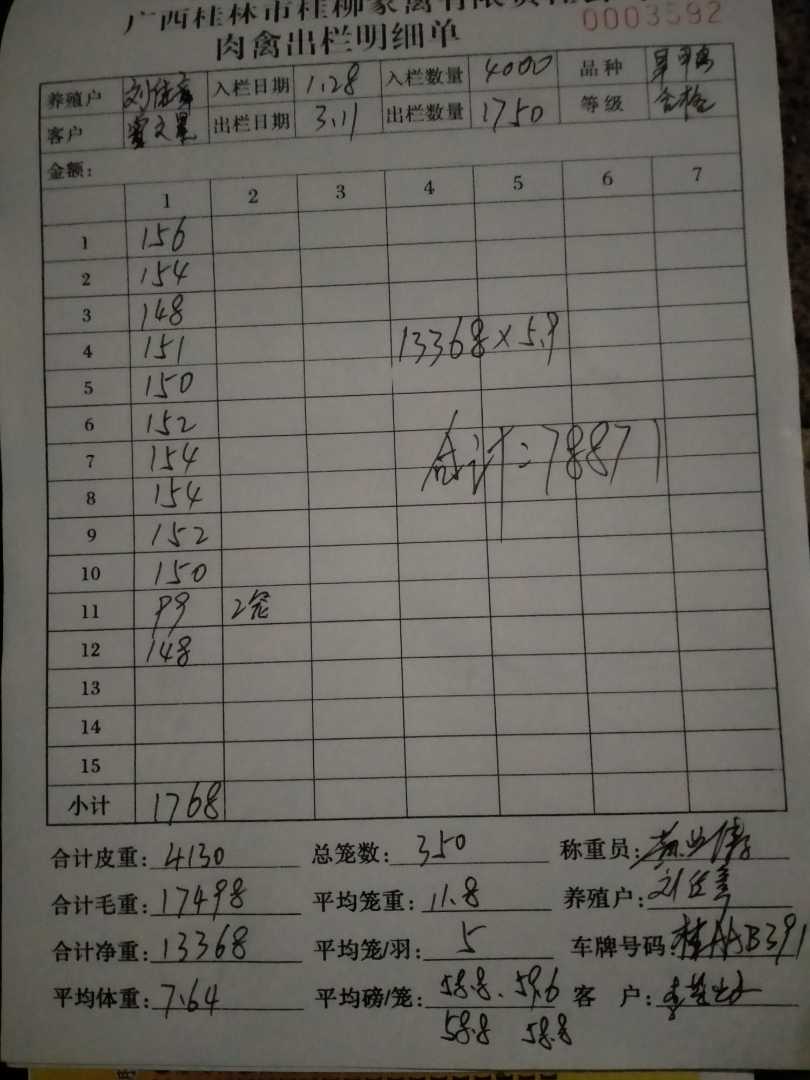 广西桂林市桂柳家禽有限责任公司
0003592
肉禽出栏明细单
养殖户 入栏日期 1.28 入栏数量 4000 品种
客户 出栏日期 3.11 出栏数量 1750 等级 合格
金额:
1 2 3 4 5 6 7
1 156
2 154
3 148
4 151 13368×5.9
5 150
6 152
7 154 合计:78871
8 154
9 152
10 150
11 99 2笼
12 148
13
14
15
小计 1768
合计皮重: 4130 总笼数: 350 称重员:
合计毛重: 17498 平均笼重: 11.8 养殖户:
合计净重: 13368 平均笼/羽: 5 车牌号码: 桂AAB391
平均体重: 7.64 平均磅/笼: 58.8、59.6 客 户:
58.8 58.8